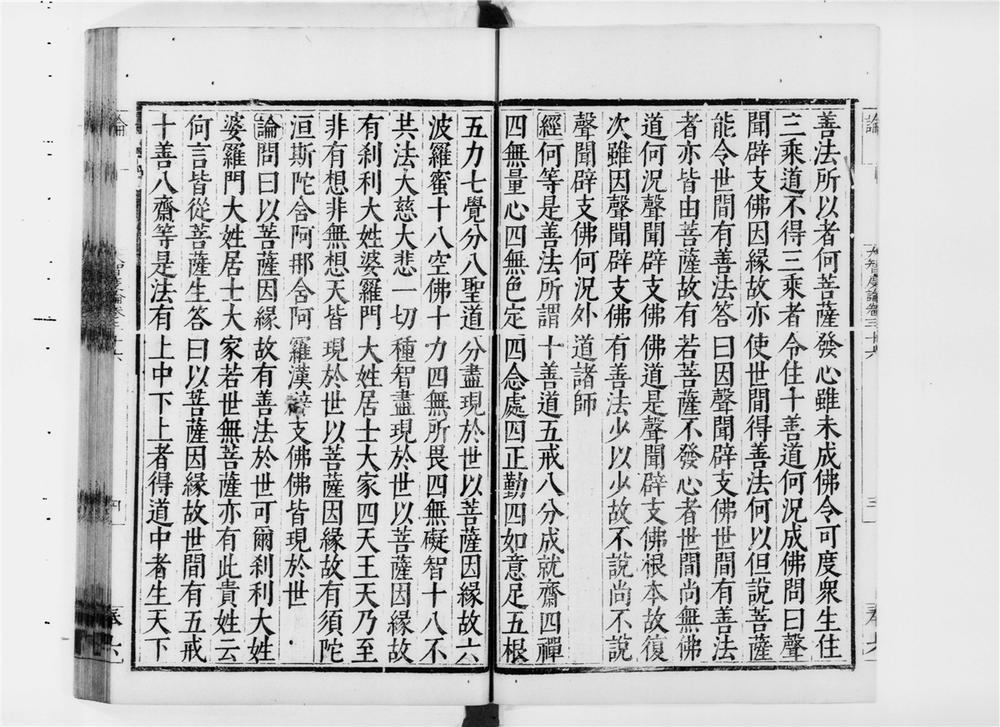 善法所以者何菩薩發心雖未成佛令可度衆生住
三乘道不得三乘者令住十善道何況成佛問曰聲
聞辟支佛因緣故亦使世間得善法何以但說菩薩
能令世間有善法答曰因聲聞辟支佛世間有善法
者亦皆由菩薩故有若菩薩不發心者世間尚無佛
道何況聲聞辟支佛佛道是聲聞辟支佛根本故復
次雖因聲聞辟支佛有善法少以少故不說尚不說
聲聞辟支佛何況外道諸師
經何等是善法所謂十善道五戒八分成就齋四禪
四無量心四無色定四念處四正勤四如意足五根
五力七覺分八聖道分盡現於世以菩薩因緣故六
波羅蜜十八空佛十力四無所畏四無礙智十八不
共法大慈大悲一切種智盡現於世以菩薩因緣故
有刹利大姓婆羅門大姓居士大家四天王天乃至
非有想非無想天皆現於世以菩薩因緣故有須陀
洹斯陀含阿那含阿羅漢辟支佛佛皆現於世
論問曰以菩薩因緣故有善法於世可爾刹利大姓
婆羅門大姓居士大家若世無菩薩亦有此貴姓云
何言皆從菩薩生答曰以菩薩因緣故世間有五戒
十善八齋等是法有上中下上者得道中者生天下